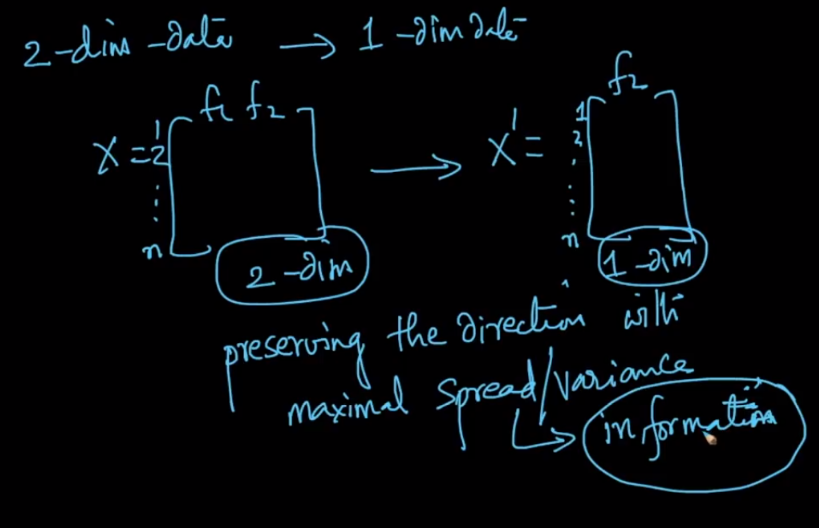 2-dim -data → 1 -dim data
f1 f2
f2
X = 1 2 ⋮ n
X' = 1 2 ⋮ n
2 -dim
1 -dim
preserving the direction with
maximal spread/variance
information